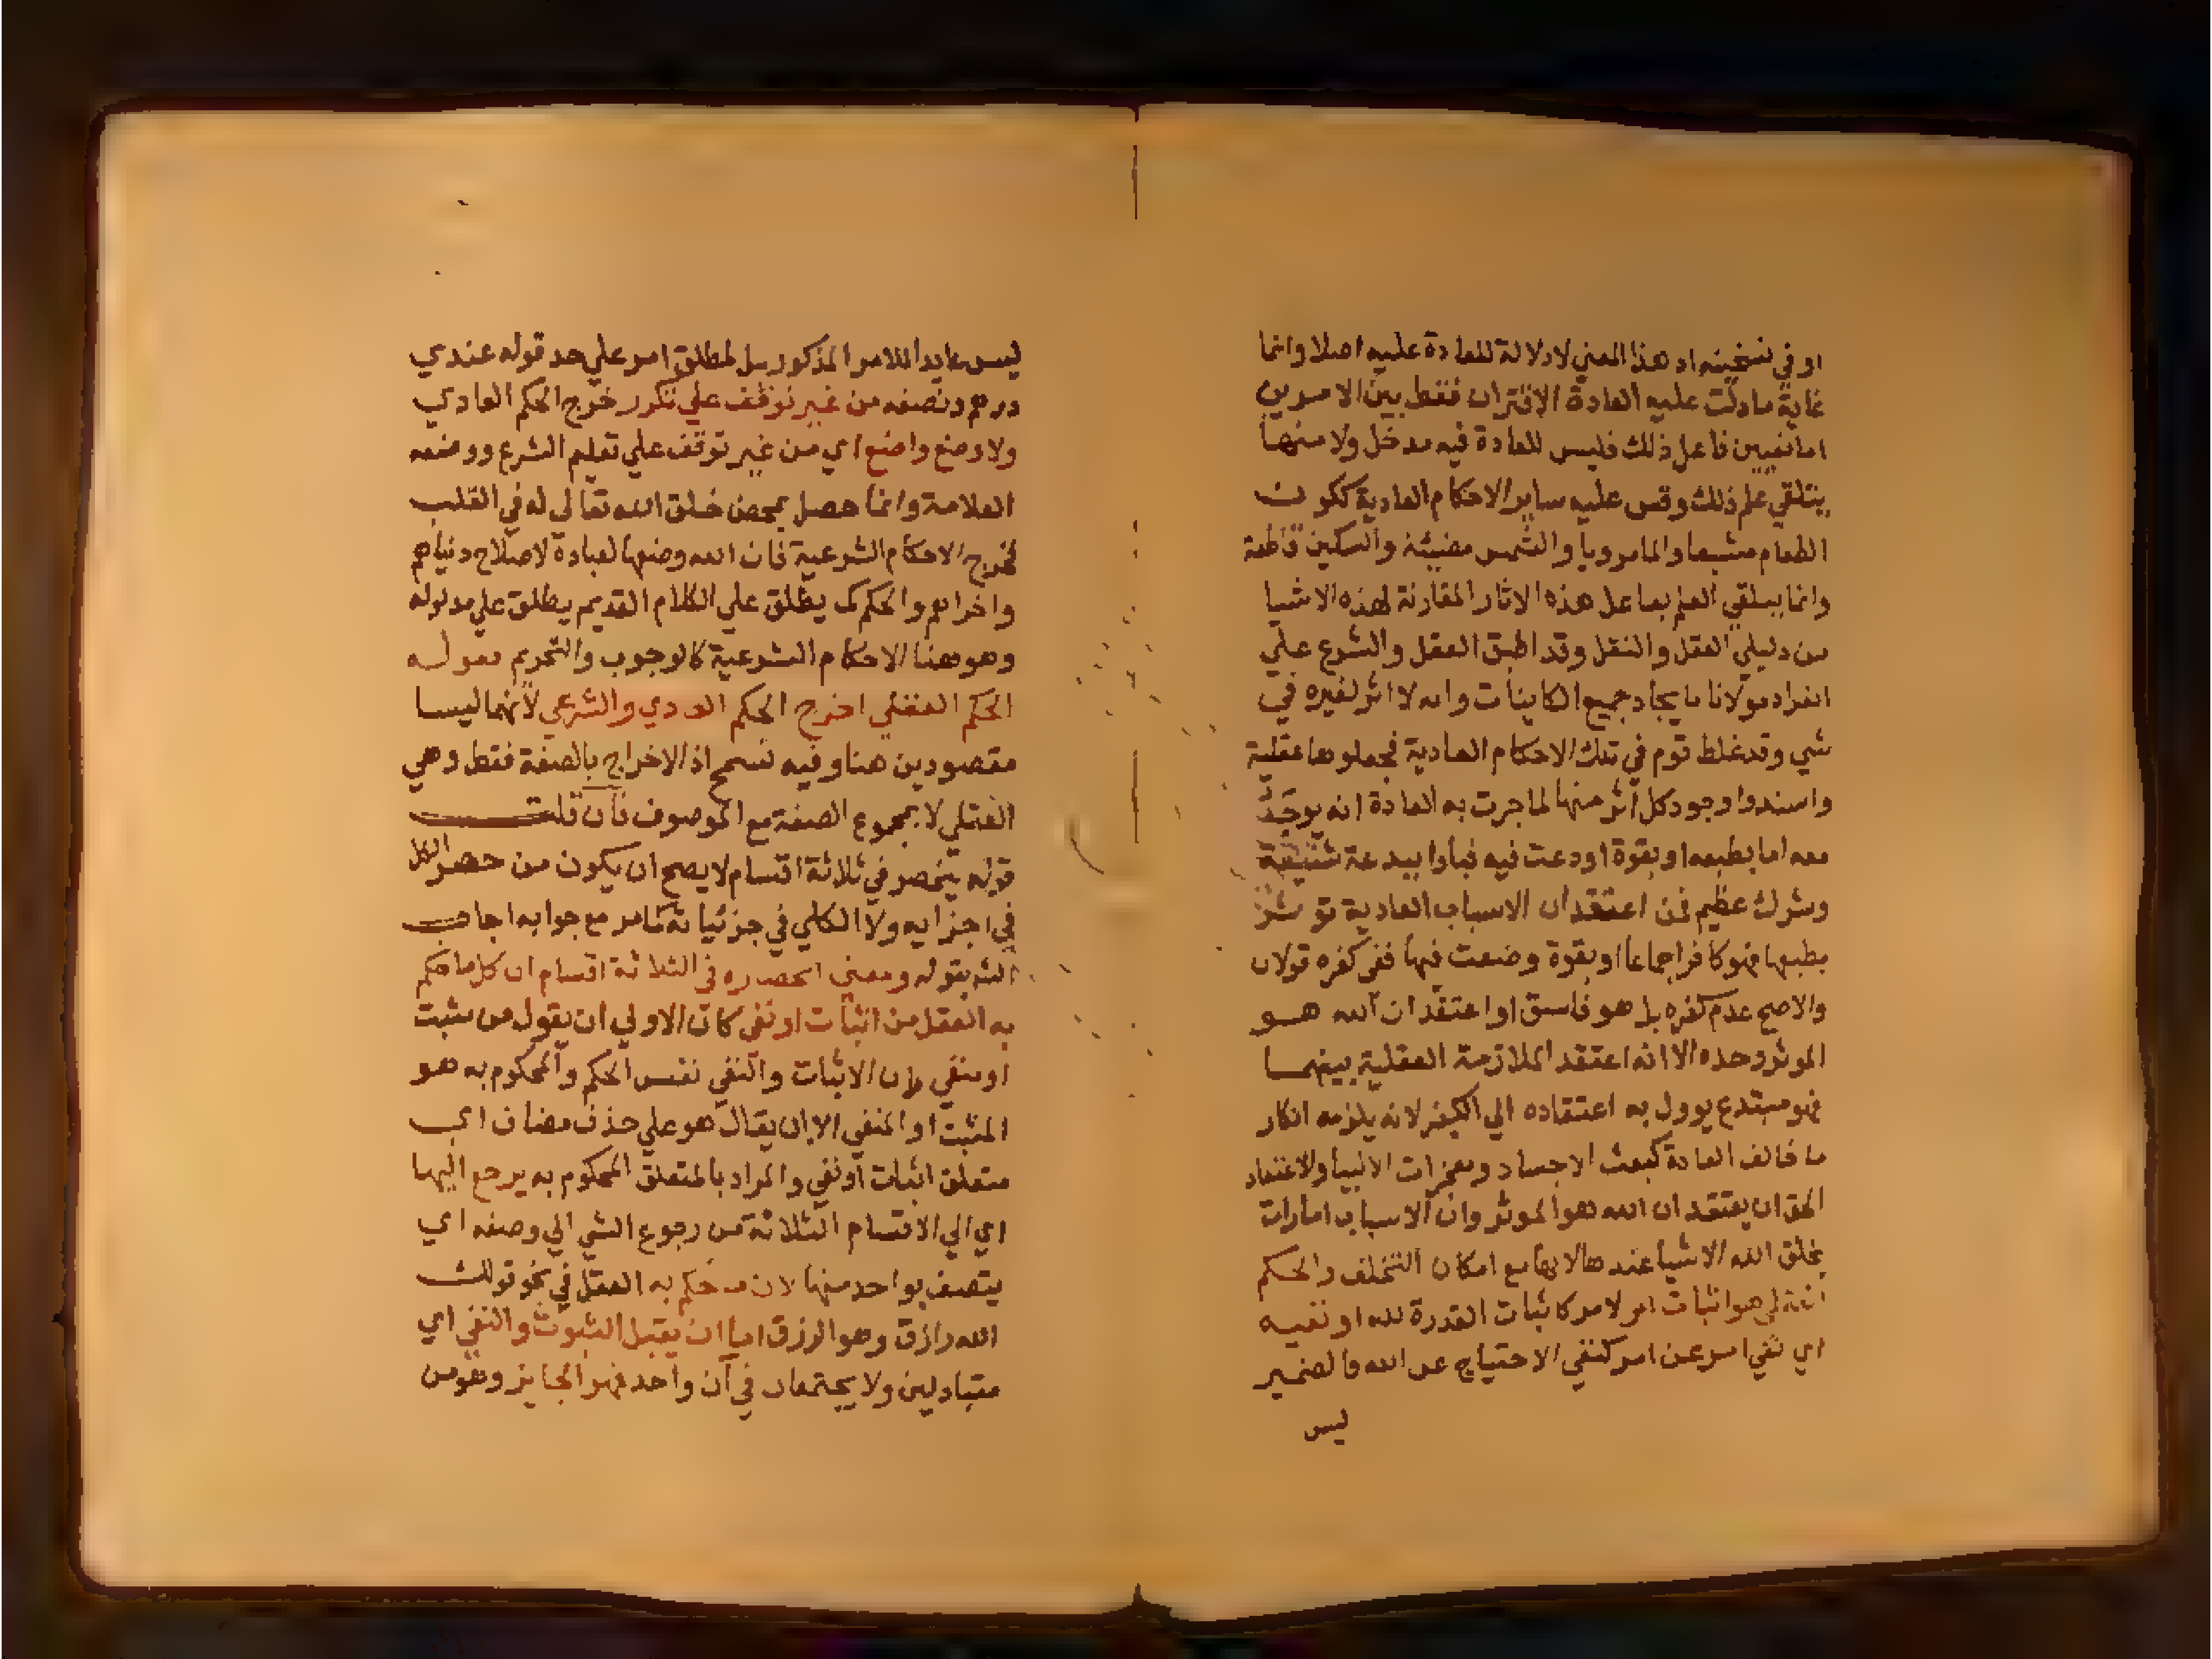 او في تسخينه اذ هذا المعني لا دلالة للعادة عليه اصلا وانما
غاية ما دلت عليه العادة الاقتران فقط بين الامرين
اما تعيين فاعل ذلك فليس للعادة فيه مدخل ولا منها
يتلقي علم ذلك وقس عليه ساير الاحكام العادية ككون
الطعام مشبعا والما مرويا والشمس مضيئة والسكين قاطعة
وانما يتلقي العلم بفاعل هذه الاثار المقارنة لهذه الاشيا
من دليلي العقل والنقل وقد اطبق العقل والشرع علي
انفراد مولانا بايجاد جميع الكاينات وانه لا اثر لغيره في
شي وقد غلط قوم في تلك الاحكام العادية فجعلوها عقلية
واسندوا وجود كل اثر منها لما جرت به العادة انه يوجد
معه اما بطبعه او بقوة اودعت فيه فباوا ببدعة شنيعة
وشرك عظيم فمن اعتقد ان الاسباب العادية توثر
بطبعها فهو كافر اجماعا او بقوة وضعت فيها ففي كفره قولان
والاصح عدم كفره بل هو فاسق او اعتقد ان الله هو
الموثر وحده الا انه اعتقد الملازمة العقلية بينهما
فهو مبتدع يوول به اعتقاده الي الكفر لانه يلزمه انكار
ما خالف العادة كبعث الاجساد ومعجزات الانبيا والاعتقاد
الحق ان يعتقد ان الله هو الموثر وان الاسباب امارات
يخلق الله الاشيا عندها لا بها مع امكان التخلف والحكم
هو اثبات امر لامر كاثبات القدرة لله او نفيه
اي نفي امر عن امر كنفي الاحتياج عن الله فالضمير
ليس
ليس عايدا للامر المذكور بل لمطلق امر علي حد قوله عندي
درهم ونصفه من غير توقف علي تكرر خرج الحكم العادي
ولا وضع واضع اي من غير توقف علي تعليم الشرع ووضعه
العلامة وانما حصل بمحض خلق الله تعالي له في القلب
فخرج الاحكام الشرعية فان الله وضعها لعباده لاصلاح دنياهم
واخراهم والحكم كما يطلق علي الكلام القديم يطلق علي مدلوله
وهو هنا الاحكام الشرعية كالوجوب والتحريم فقوله
الحكم العقلي اخرج الحكم العادي والشرعي لانهما ليسا
مقصودين هنا وفيه تسمح اذ الاخراج بالصفة فقط وهي
العقلي لا بمجموع الصفة مع الموصوف فان قلت
قوله ينحصر في ثلاثة اقسام لا يصح ان يكون من حصر الكل
في اجزايه ولا الكلي في جزئياته كما مر مع جوابه اجاب
الشه بقوله ومعني انحصاره في الثلاثة اقسام ان كل ما حكم
به العقل من اثبات او نفي كان الاولي ان يقول من مثبت
او منفي فان الاثبات والنفي نفس الحكم والمحكوم به هو
المثبت او المنفي الا ان يقال هو علي حذف مضاف اي
متعلق اثبات او نفي والمراد بالمتعلق المحكوم به يرجع اليها
اي الي الاقسام الثلاثة من رجوع الشي الي وصفه اي
يتصف بواحد منها لان ما حكم به العقل في نحو قولك
الله رازق وهو الرزق اما ان يقبل الثبوت والنفي اي
متبادلين ولا يجتمعان في آن واحد فهو الجايز وهو من